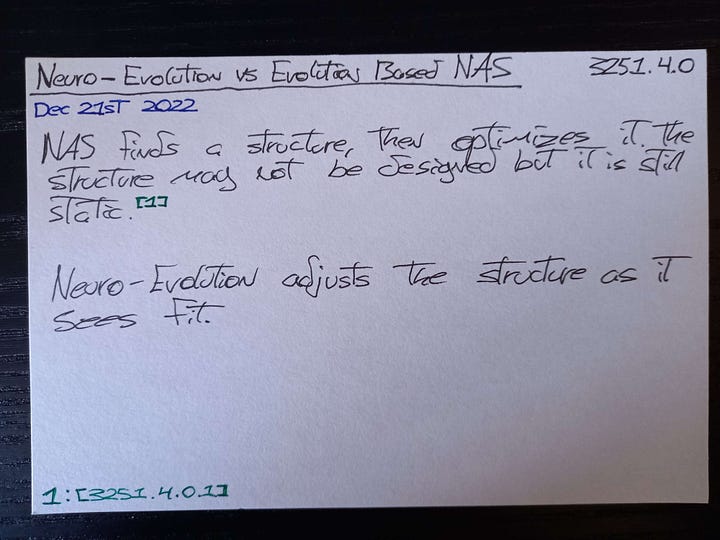 Neuro-Evolution vs Evolution Based NAS 3251.4.0
Dec 21st 2022
NAS finds a structure, then optimizes it. The
structure may not be designed but it is still
static. [1]
Neuro-Evolution adjusts the structure as it
sees fit.
1:[3251.4.0.1]